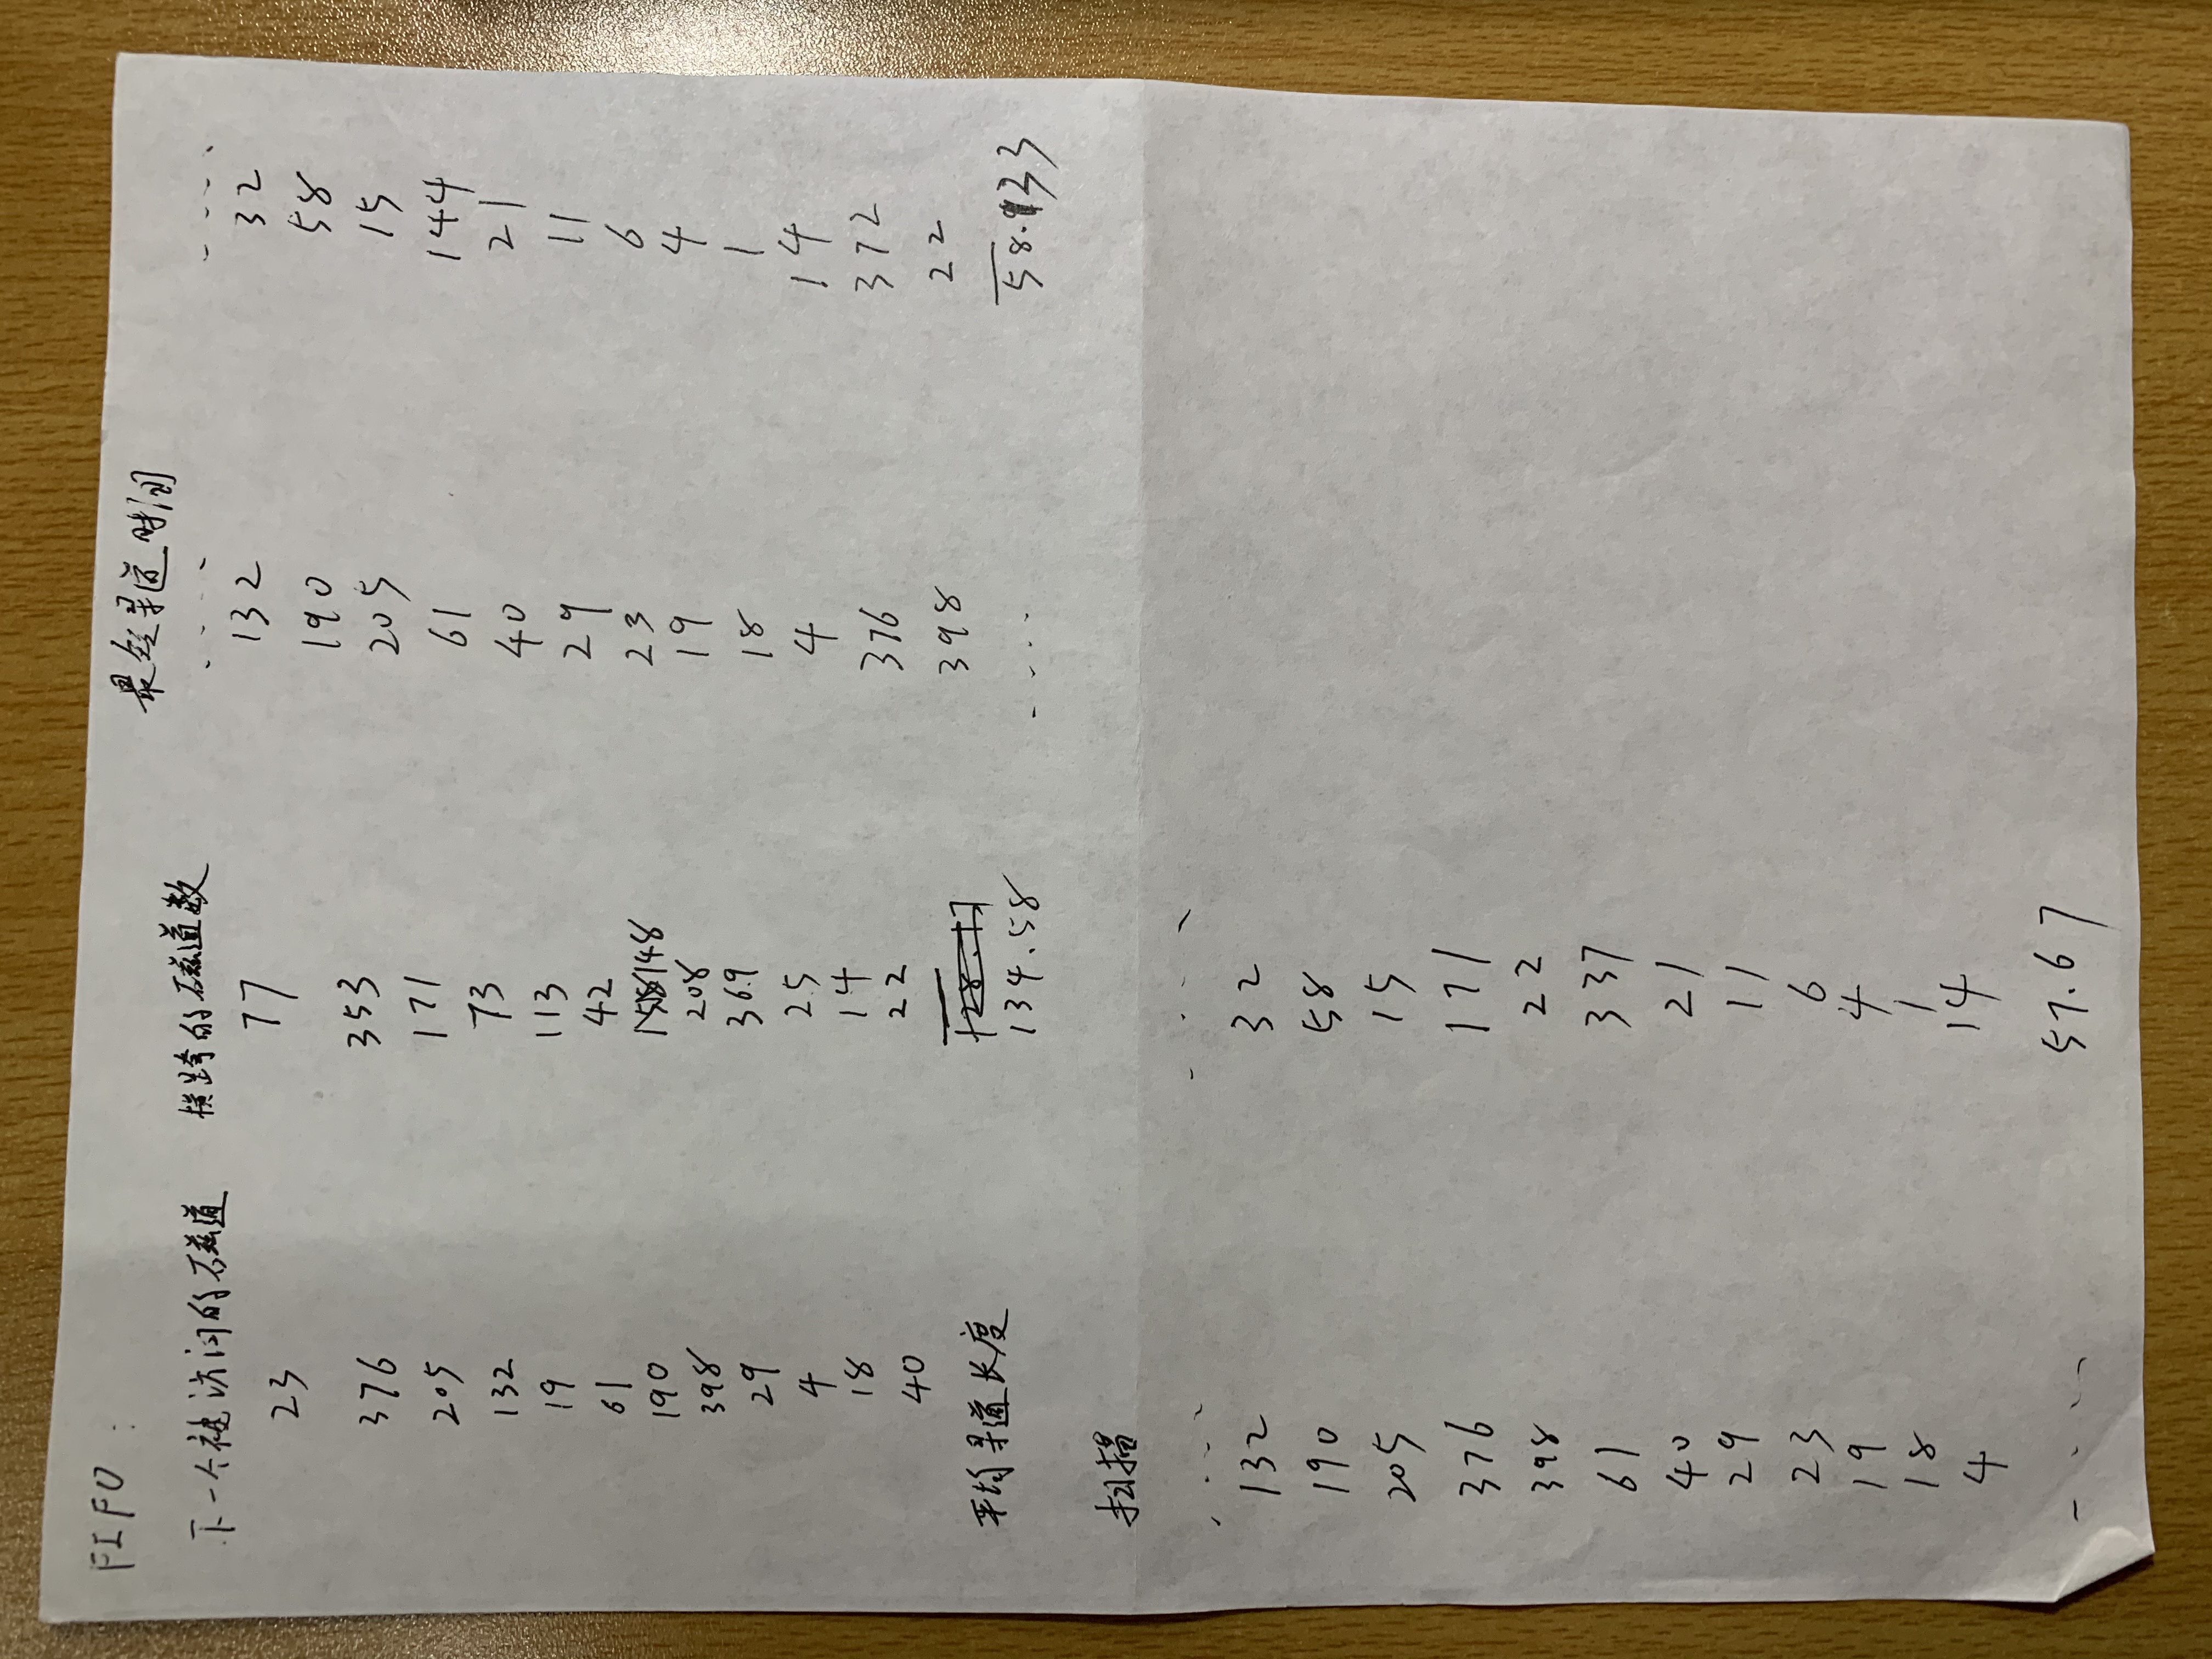 FIFO:
下一个被访问的磁道 横跨的磁道数
23 77
376 353
205 171
132 73
19 113
61 42
190 148
398 208
29 369
4 25
18 14
40 22
平均寻道长度 134.58
最短寻道时间
132 32
190 58
205 15
61 144
40 21
29 11
23 6
19 4
18 1
4 14
376 372
398 22
58.33
扫描
132 32
190 58
205 15
376 171
398 22
61 337
40 21
29 11
23 6
19 4
18 1
4 14
57.67